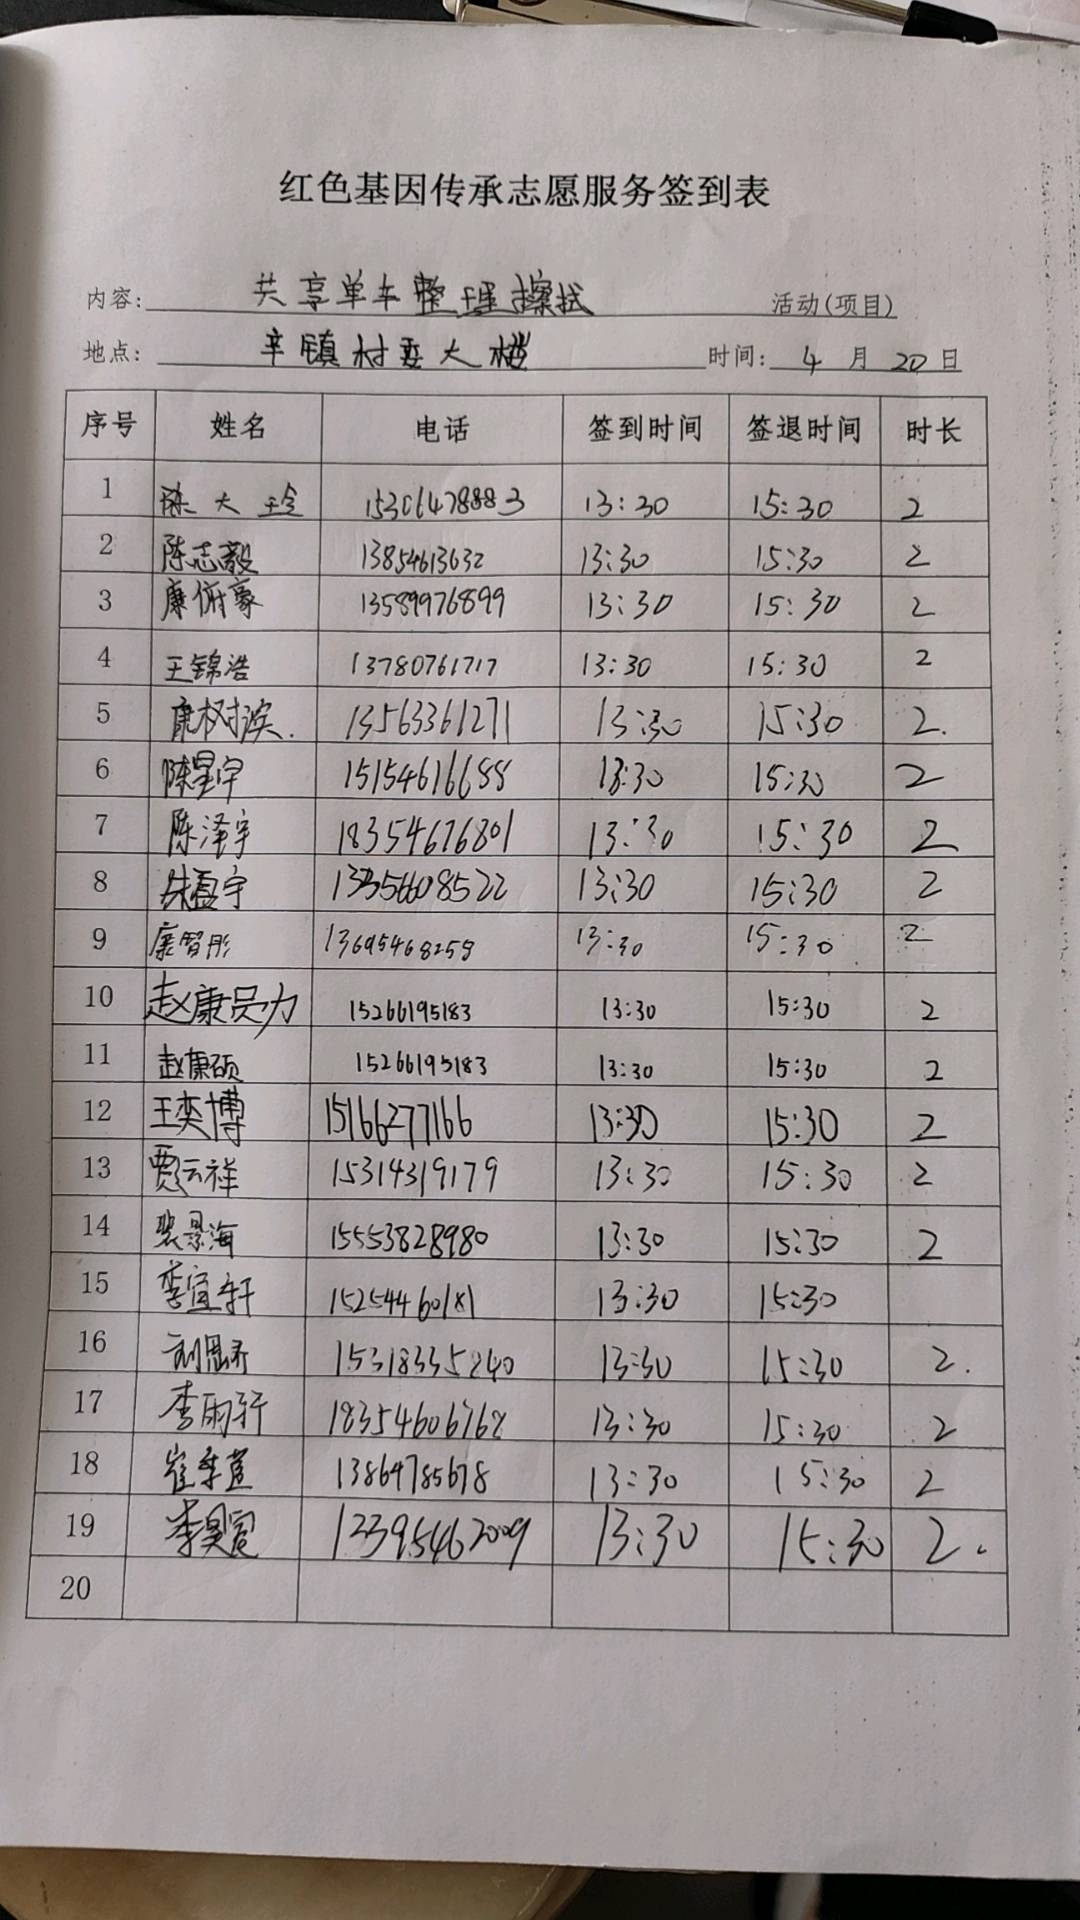 红色基因传承志愿服务签到表
内容: 共享单车整理擦拭 活动(项目)
地点: 辛镇村委大楼 时间: 4 月 20 日
序号 姓名 电话 签到时间 签退时间 时长
1 陈大玲 15306478883 13:30 15:30 2
2 陈志毅 13854613632 13:30 15:30 2
3 康俯豪 13589976899 13:30 15:30 2
4 王锦浩 13780761717 13:30 15:30 2
5 康树滨. 13563361271 13:30 15:30 2.
6 陈星宇 15154616688 13:30 15:30 2
7 陈泽宇 18354676801 13:30 15:30 2
8 朱盈宇 13:30 15:30 2
9 康智彤 13695468258 13:30 15:30 2
10 赵康员力 15266195183 13:30 15:30 2
11 赵康硕 15266195183 13:30 15:30 2
12 王奕博 15166277166 13:30 15:30 2
13 贾云祥 15314319179 13:30 15:30 2
14 裴景海 15553828980 13:30 15:30 2
15 李宜轩 15254460181 13:30 15:30
16 刘恩乔 15318335240 13:30 15:30 2.
17 李雨轩 18354606768 13:30 15:30 2
18 崔 13864785678 13:30 15:30 2
19 李昊 13:30 15:30 2.
20